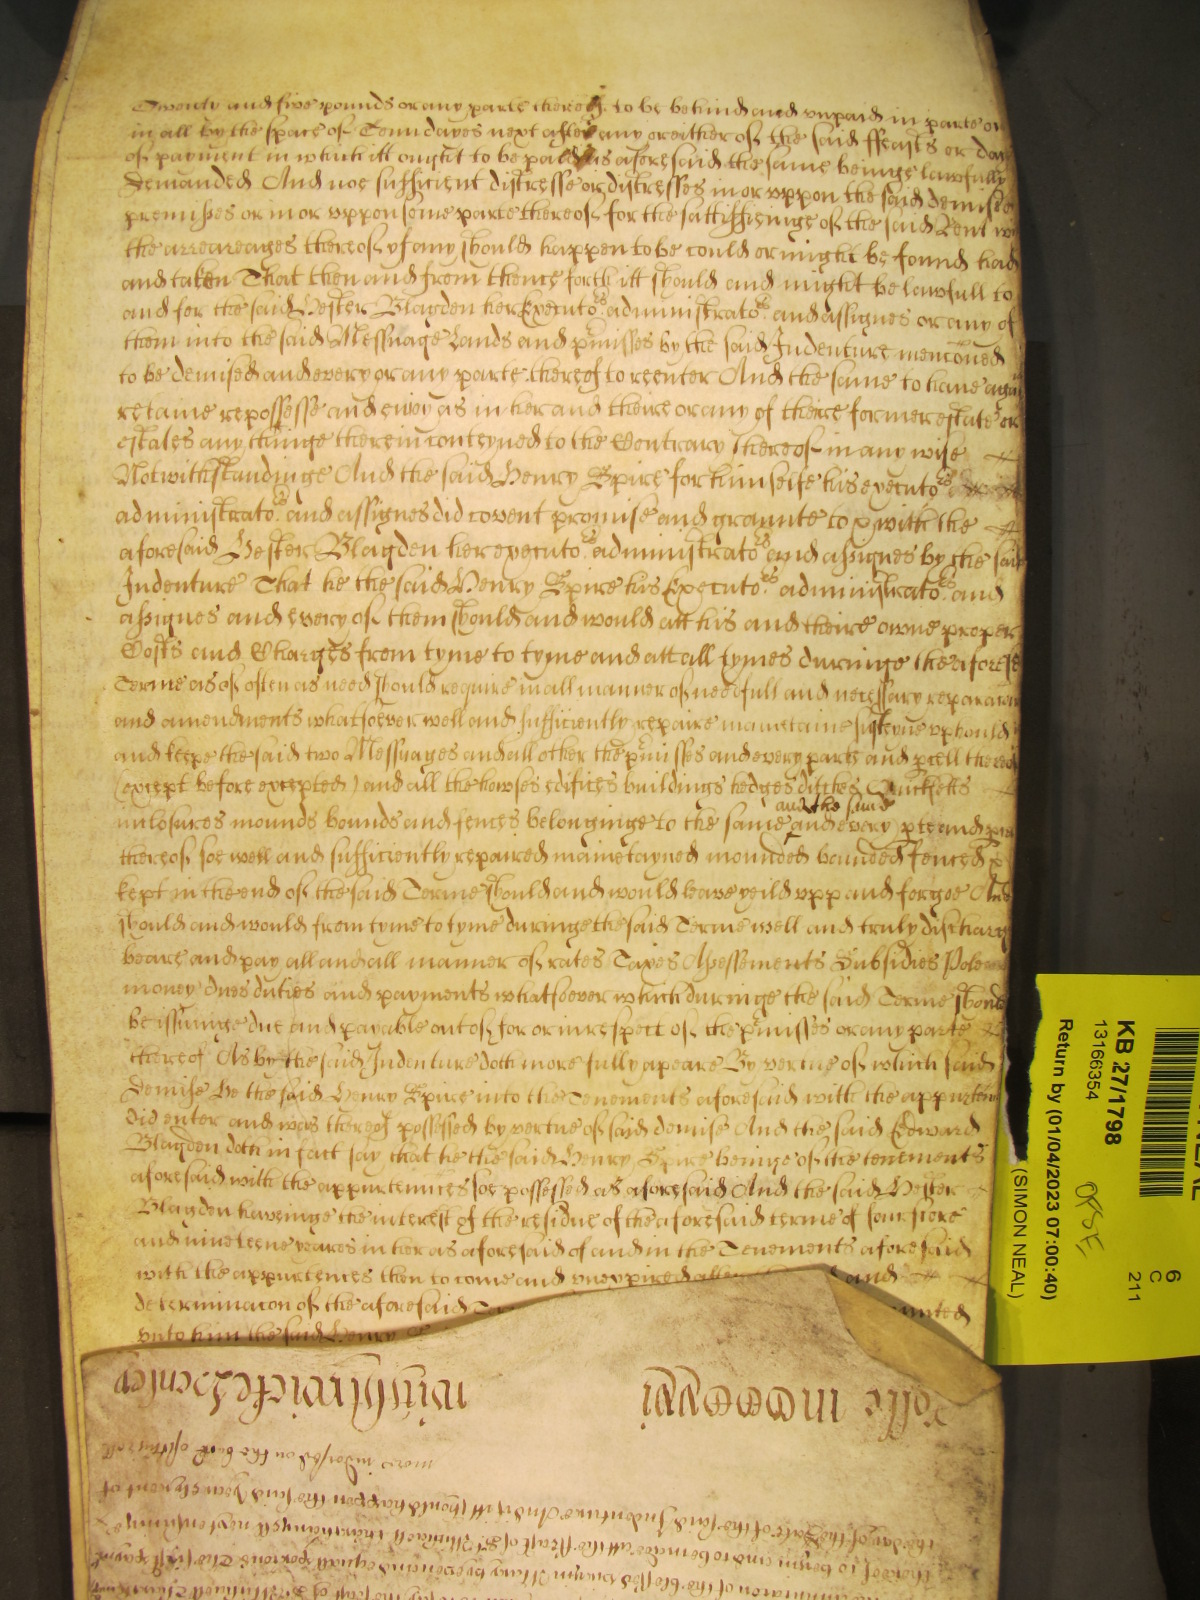 Twenty and five pounds or any parte thereof to be behind and unpaid in parte or
in all by the space of Tenn dayes next after any or either of the said ffeasts or dayes
of payment in which itt ought to be paid as aforesaid the same beinge lawfully
demanded And noe sufficient distresse or distresses in or uppon the said demised
premisses or in or uppon some parte thereof for the sattisfieinge of the said Rent with
the arreareages thereof yf any should happen to be could or might be found had
and taken That then and from thence forth itt should and might be lawfull to
and for the said Hester Blagden her Executors administrators and assignes or any of
them into the said Messuage Lands and pmisses by the said Indenture menconed
to be demised and every or any parte thereof to reenter And the same to have againe
retaine repossesse and enioy as in her and theire or any of theire former estate or
estates any thinge therein conteyned to the Contrary thereof in any wise
Notwithstandinge And the said Henry Spire for himselfe his executors
administrators and assignes did covent promise and graunte to & with the
aforesaid Hester Blagden her executors administrators and assignes by the said
Indenture That he the said Henry Spire his Executors administrators and
assignes and every of them should and would att his and theire owne proper
Costs and Charges from tyme to tyme and att all tymes duringe the aforesd
Terme as of often as need should require in all manner of needfull and necessary reparacons
and amendments whatsoever well and sufficiently repaire maintaine susteyne uphould
and keepe the said two Messuages and all other the pmisses and every parte and pcell thereof
(except before excepted) and all the howses edifices buildings hedges ditches Quicksetts
inclosures mounds bounds and fences belonginge to the same and every pte and pcell
and the same
thereof soe well and sufficiently repaired mainetayned mounded bounded fenced &
kept in the end of the said Terme should and would leave yeild upp and forgoe And
should and would from tyme to tyme duringe the said Terme well and truly discharge
beare and pay all and all manner of rates Taxes Assessements Subsidies Pole
money dues duties and payments whatsoever which duringe the said Terme should
be issuinge due and payable out of for or in respect of the pmisses or any parte
thereof As by the said Indenture doth more fully apeare By vertue of which said
demise He the said Henry Spire into the Tenements aforesaid with the appurten
did enter and was thereof possessed by vertue of said demise And the said Edward
Blagden doth in fact say that he the said Henry Spire beinge of the tenements
aforesaid with the appurtennces soe possessed as aforesaid And the said Hester
Blagden haveinge the interest of the residue of the aforesaid terme of foure score
and nineteene yeares in her as aforesaid of and in the Tenements aforesaid
with the appurtences then to come and unexpired and
determinacon of the aforesaid
unto him the said Henry
KB 27/1798
13166354
Return by (01/04/2023 07:00:40)
(SIMON NEAL)
6
C
211
more indorsed on the back of this roll
the day of the date of the said Indenture And if itt should happen the said yearely rent of